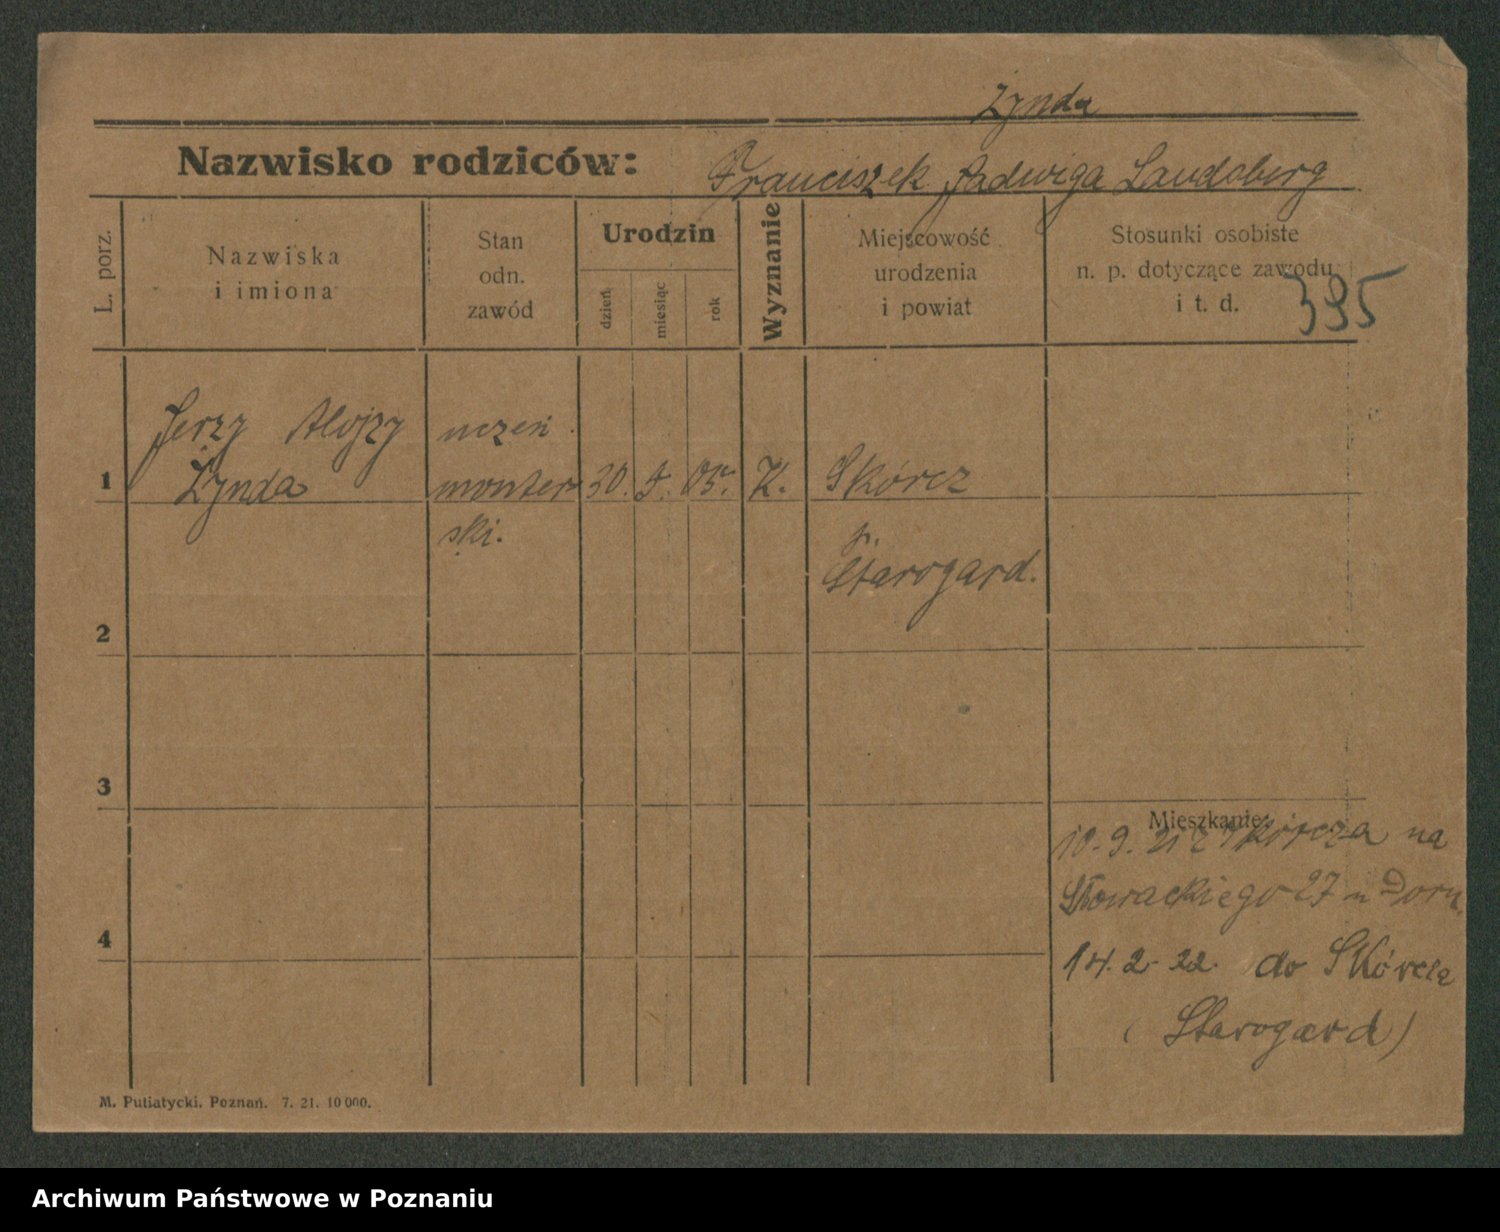 Zynda
Nazwisko rodziców: Franciszek Jadwiga Landsberg
L. porz.
Nazwiska
i imiona
Stan
odn.
zawód
Urodzin
dzień
miesiąc
rok
Wyznanie
Miejscowość
urodzenia
i powiat
Stosunki osobiste
n. p. dotyczące zawodu
i t. d.
395
Jerzy Alojzy
uczeń
1 Zynda monter 30. 05. K. Skórcz
ski.
p.
Starogard.
2
3
Mieszkanie:
10. 9. 21 z Skórcza na
Słowackiego 27 u Dorn
4
14. 2. 22. do Skórcza
(Starogard)
M. Putiatycki, Poznań. 7. 21. 10 000.
Archiwum Państwowe w Poznaniu